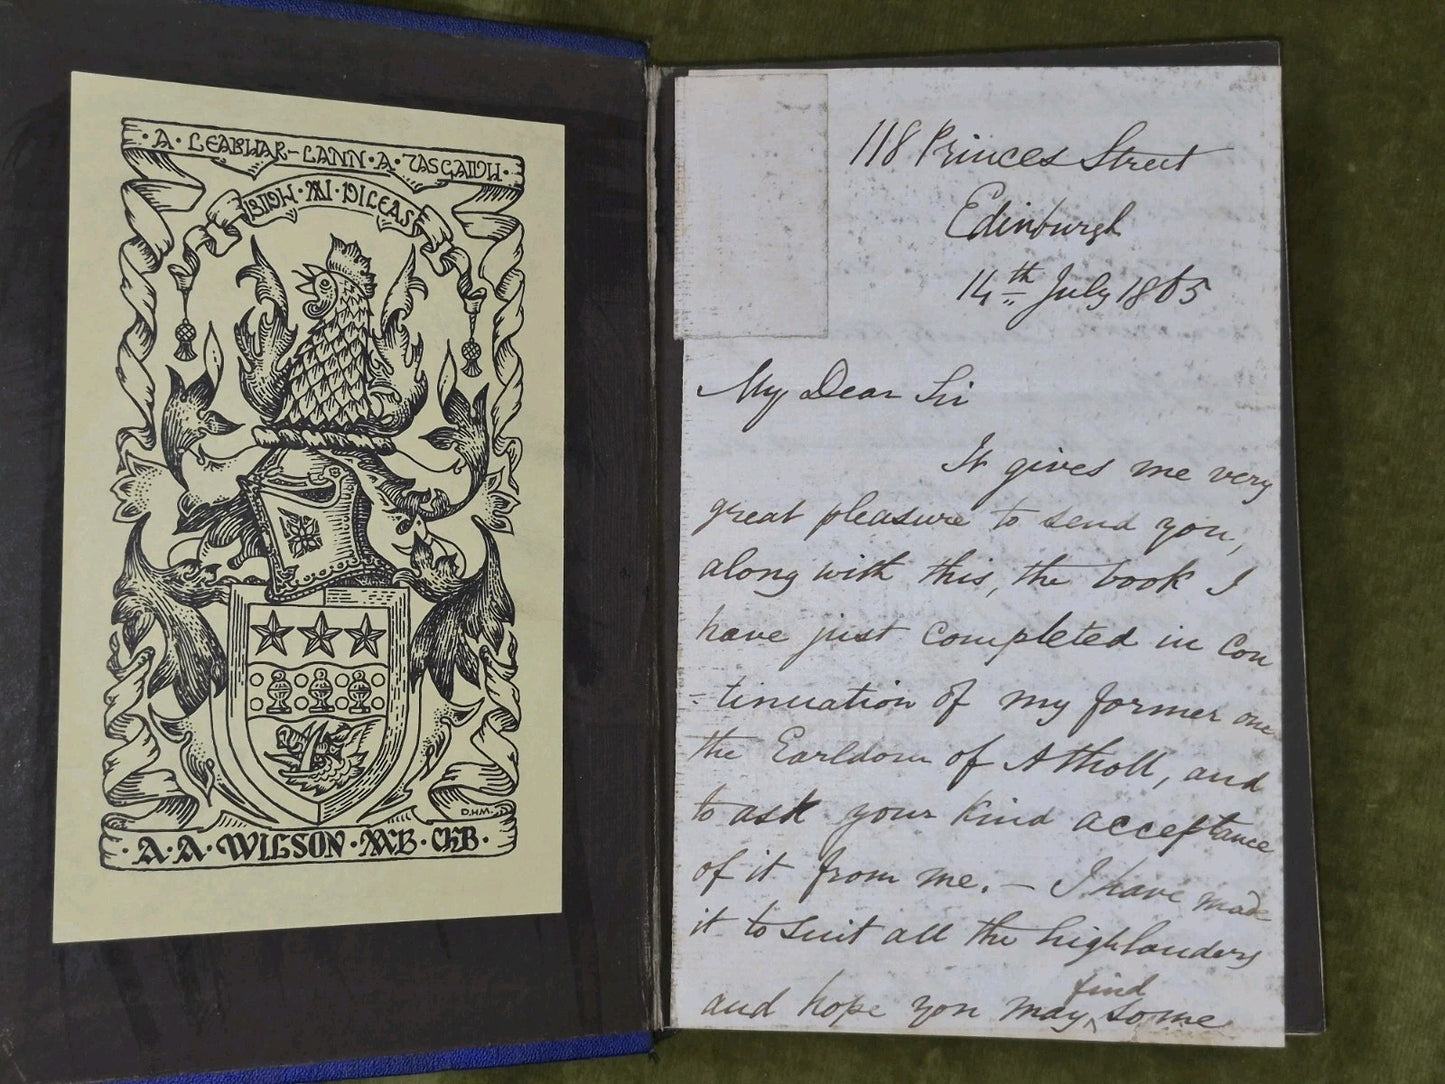 · A · LEABHAR-LANN · A · UASGAIDH ·
BIDH · MI · DILEAS
D.H.M.
· A · A · WILSON · MB · CHB ·
118 Princes Street
Edinburgh
14th July 1865
My Dear Sir
It gives me very
great pleasure to send you,
along with this, the book I
have just completed in Con
-tinuation of my former one
the Earldom of Atholl, and
to ask your kind acceptance
of it from me. — I have made
it to suit all the highlanders
find
and hope you may ‸ some